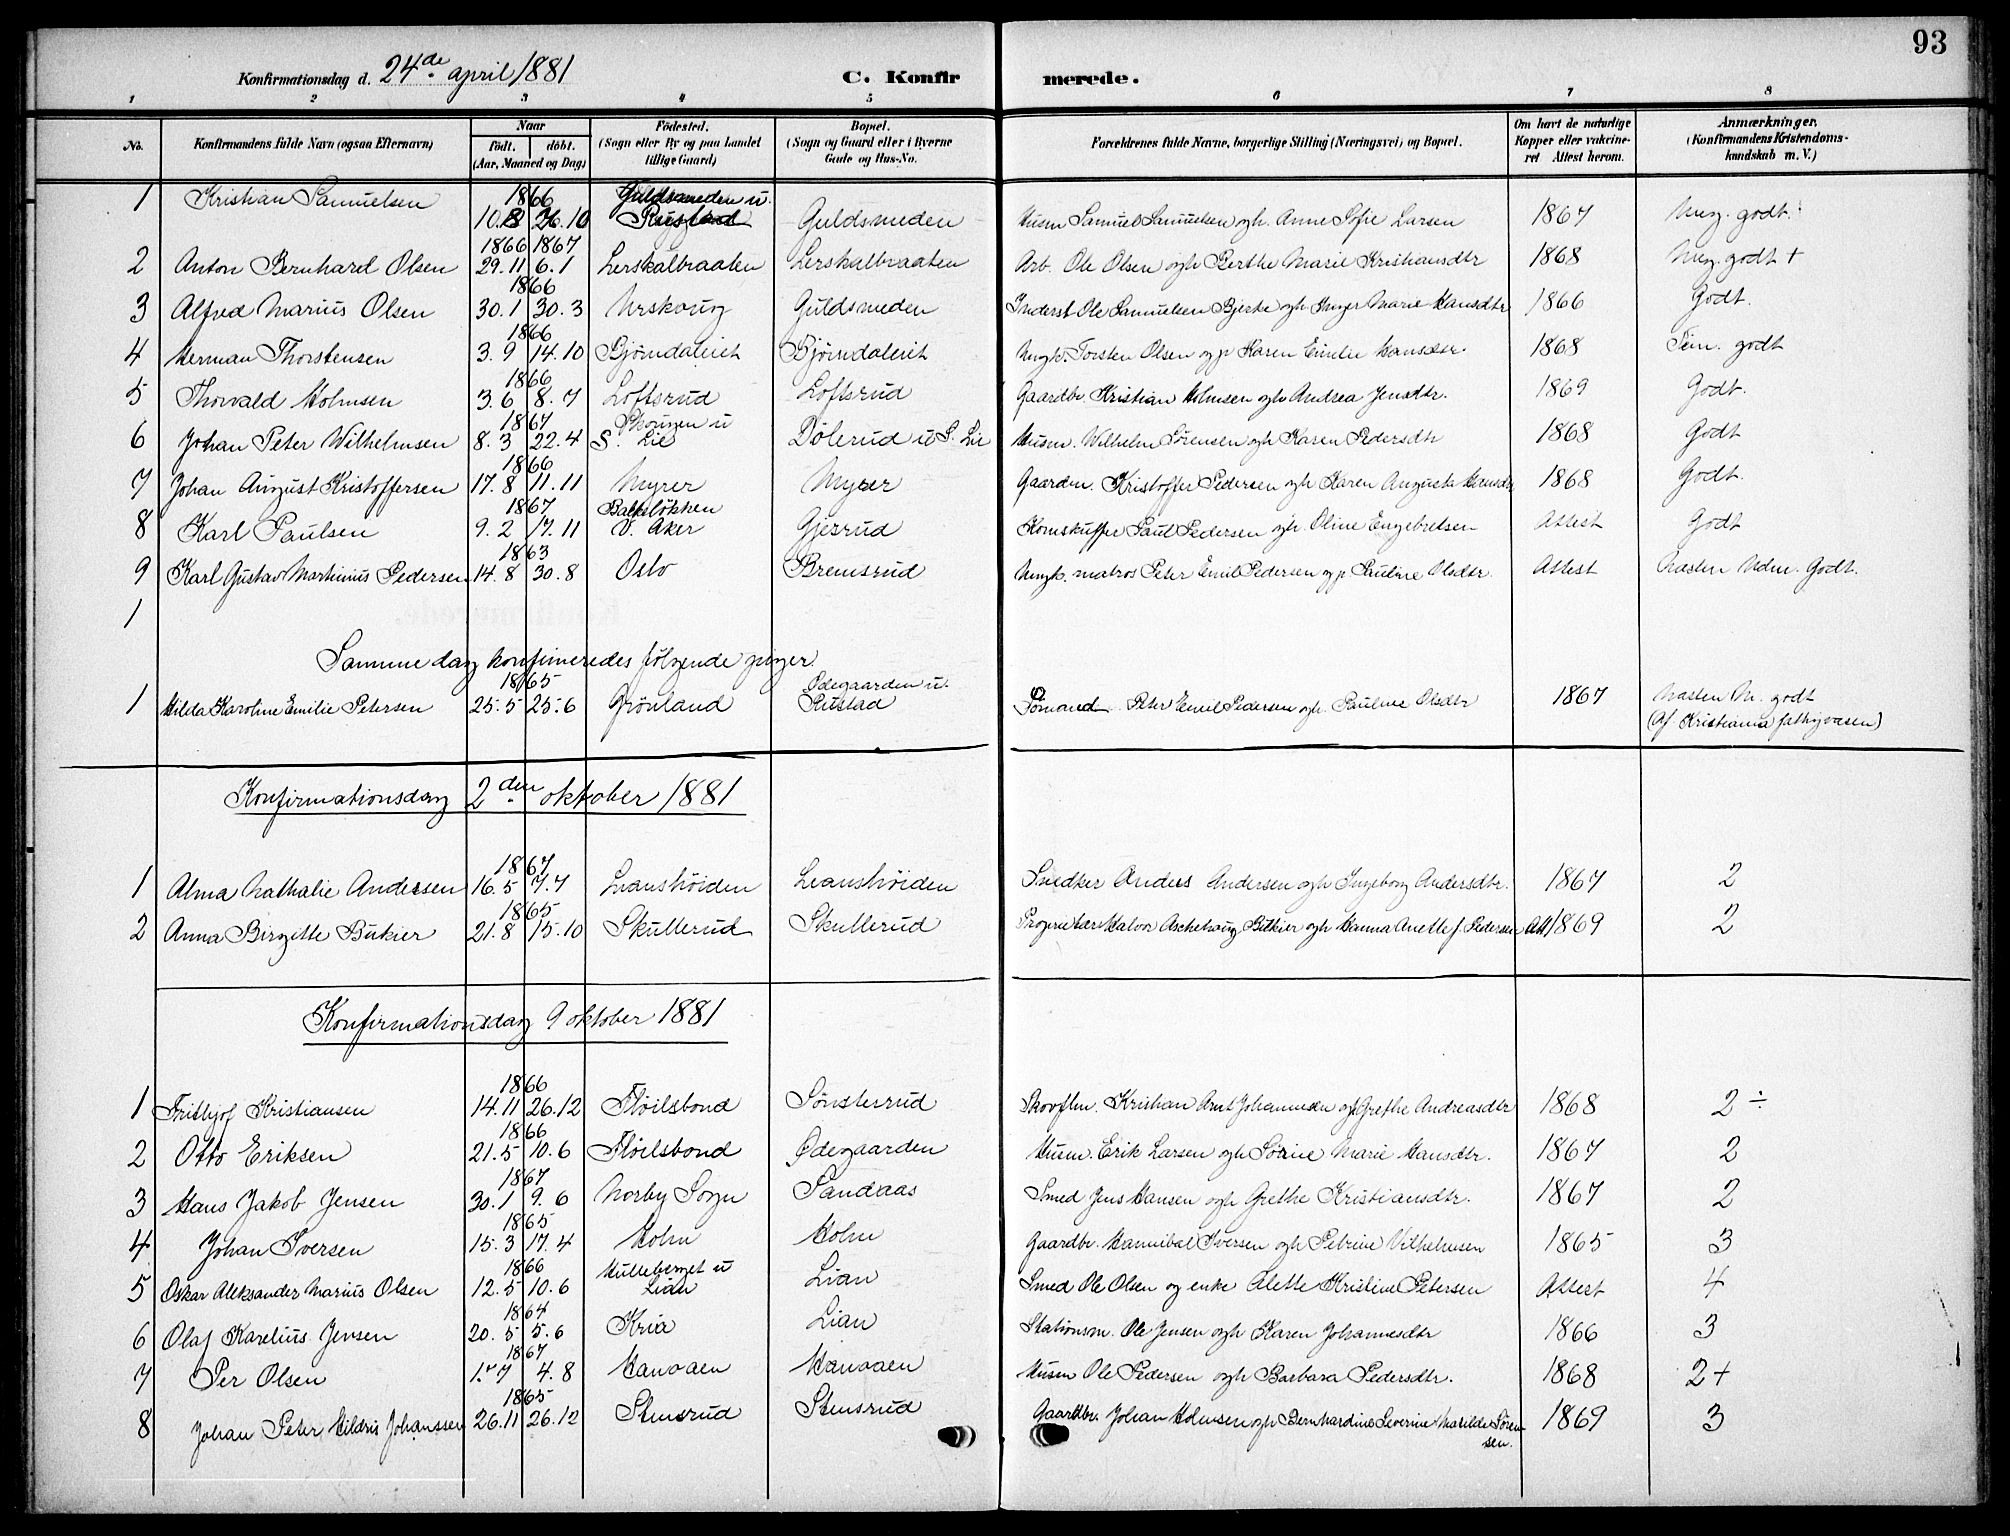 93
Konfirmationsdag d. 24de april 1881 C. Konfirmerede.
1 2 3 4 5 6 7 8
No. Konfirmandens fulde Navn (ogsaa Efternavn) Naar født. døbt. (Aar, Maaned og Dag) Fødested. (Sogn eller By og paa Landet tillige Gaard) Bopæl. (Sogn og Gaard eller i Byerne Gade og Hus-No. Forældrenes fulde Navne, borgerlige Stilling (Næringsvei) og Bopæl. Om havt de naturlige Kopper eller vakcineret Attest herom. Anmærkninger. (Konfirmandens Kristendomskundskab m. V.)
1 Kristian Samuelsen 1866 10.8 26.10 Guldsmeden u. Rustad Guldsmeden Husm Samuel Samuelsen ogh. Anne Sofie Larsen 1867 Meg. godt.
2 Anton Bernhard Olsen 1866 29.11 1867 6.1 Lerskalbraaten Lerskalbraaten Arb. Ole Olsen ogh Berthe Marie Kristiansdtr 1868 Meg. godt +
3 Alfred Marius Olsen 1866 30.1 30.3 Urskoug Guldsmeden Inderst Ole Samuelsen Bjerke ogh Inger Marie Hansdtr 1866 Godt.
4 Herman Thorstensen 1866 3.9 14.10 Bjørndaleiet Bjørndaleiet Ungk. Torsten Olsen og p Karen Emilie Hansdtr. 1868 Tem. godt
5 Thorvald Holmsen 1866 3.6 8.7 Loftsrud Loftsrud Gaardbr. Kristian Holmsen ogh Andrea Jensdtr. 1869 Godt.
6 Johan Peter Wilhelmsen 1867 8.3 22.4 Skougen u S. Lie Dølerud u S. Lie Husm. Wilhelm Sørensen ogh Karen Pedersdtr 1868 Godt
7 Johan August Kristoffersen 1866 17.8 11.11 Myrer Myrer Gaardm. Kristoffer Pedersen ogh Karen Augusta Hansdtr 1868 Godt.
8 Karl Paulsen 1867 9.2 17.11 Bakkeløkken V. Aker Gjesrud Kornskuffer Paul Pedersen ogh. Oline Engebretsen Attest Godt
9 Karl Gustav Martinius Pedersen 1863 14.8 30.8 Oslo Bremsrud Ungk. matros Peter Emil Pedersen og p Pauline Olsdtr. Attest Næsten Udm. Godt.
1
Samme dag konfimeredes følgende piger
1 Hilda Karoline Emilie Petersen 1865 25.5 25.6 Grønland Ødegaarden u. Rustad Sømand Peter Emil Pedersen ogh. Pauline Olsdtr 1867 Næsten M. godt
(Af Kristiania fattigvæsen)
Konfirmationsdag 2den oktober 1881
1 Alma Nathalie Andersen 1867 16.5 7.7 Lianshøiden Lianshøiden Snedker Anders Andersen ogh Ingeborg Andersdtr. 1867 2
2 Anna Birgitte Bükier 1865 21.8 15.10 Skullerud Skullerud Proprietær Halvor Aschehoug Bükier ogh Hanna Anette f. Pedersen Att 1869 2
Konfirmationsdag 9 oktober 1881
1 Frithjof Kristiansen 1866 14.11 26.12 Fløilsbond Sønsterrud Skovflm. Kristian Arnt Johannesen ogh Grethe Andreasdtr 1868 2 ÷
2 Otto Eriksen 1866 21.5 10.6 Fløilsbond Ødegaarden Husm. Erik Larsen ogh Sørine Marie Hansdtr. 1867 2
3 Hans Jakob Jensen 1867 30.1 9.6 Norby Sogn Sandaas Smed Jens Hansen ogh Grethe Kristiansdtr. 1867 2
4 Johan Iversen 1865 15.3 17.4 Holm Holm Gaardbr. Hannibal Iversen ogh Petrine Vilhelmsen 1865 3
5 Oskar Aleksander Marius Olsen 1866 12.5 10.6 Hulleberget u Lian Lian Smed Ole Olsen og enke Alette Kristine Petersen Attest 4
6 Olaf Karelius Jensen 1864 20.5 5.6 Kria Lian Stationsm. Ole Jensen ogh Karen Johannesdtr 1866 3
7 Per Olsen 1867 1.7 4.8 Hanaaen Hanaaen Husm Ole Pedersen ogh Barbara Pedersdtr. 1868 2+
8 Johan Peter Hildris Johanssen 1865 26.11 26.12 Stensrud Stensrud Gaardbr. Johan Holmsen ogh Bernhardine Severine Matilde Sørensen. 1869 3